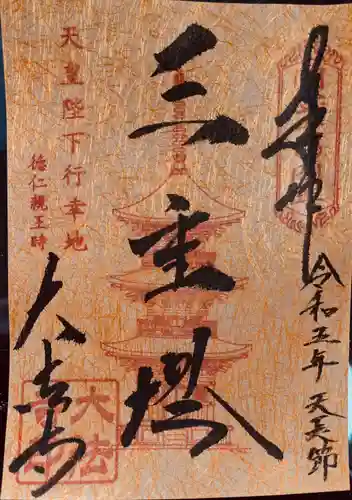 奉拝
令和五年 天長節
三重塔
天皇陛下行幸地
徳仁親王時
大法寺